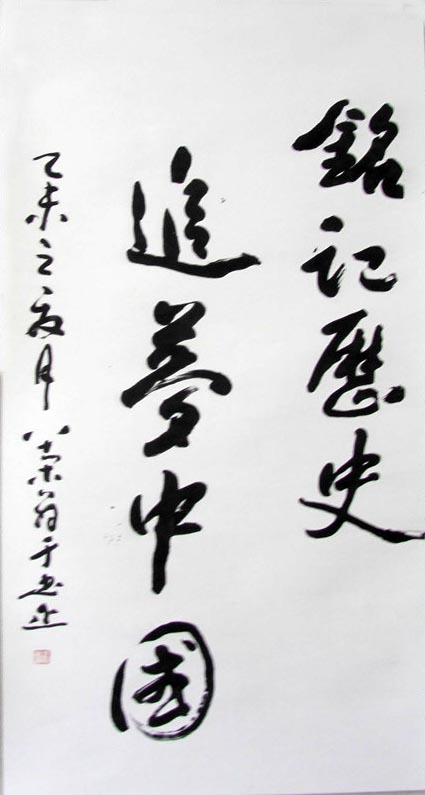 銘記歷史
追夢中國
乙未之夏月八十荣翁于